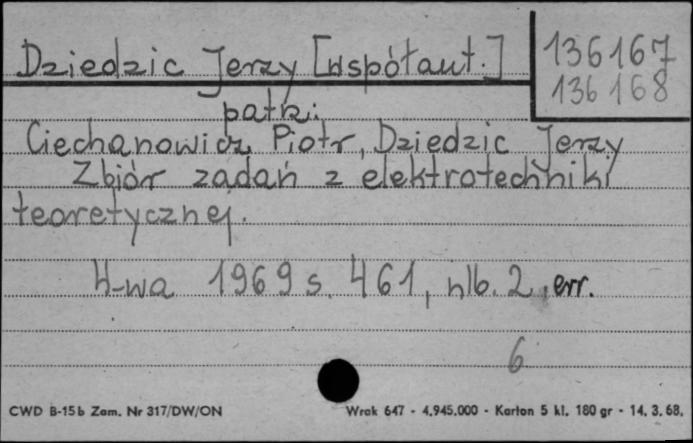 Dziedzic Jerzy [współaut.]
136167
136168
patrz:
Ciechanowicz Piotr, Dziedzic Jerzy
Zbiór zadań z elektrotechniki
teoretycznej.
W-wa 1969 s. 461, nlb. 2, err.
6
CWD B-15b Zam. Nr 317/DW/ON Wrak 647 - 4.945.000 - Karton 5 kl. 180 gr - 14. 3. 68.